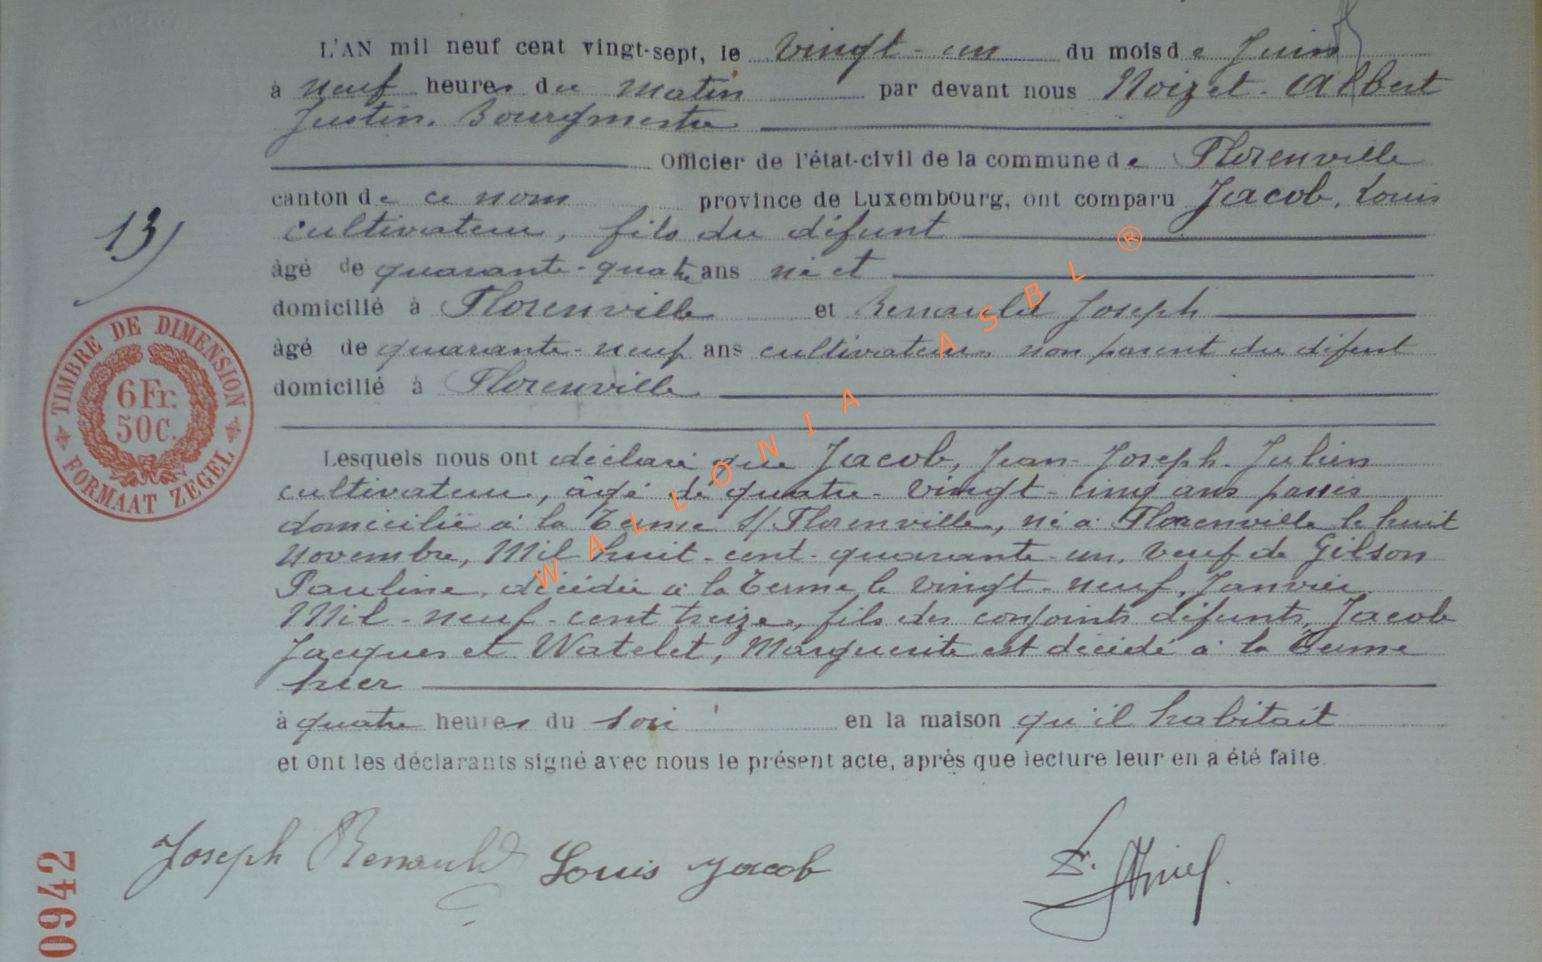 L'AN mil neuf cent vingt-sept, le vingt-un du mois de Juin
à neuf heures du matin par devant nous Noizet-Albert
Justin. Bourgmestre
Officier de l'état-civil de la commune de Florenville
canton de ce nom province de Luxembourg, ont comparu Jacob, Louis
cultivateur, fils du défunt
âgé de quarante-quatre ans né et
domicilié à Florenville et Renauld Joseph
âgé de quarante-neuf ans cultivateur non parent du défunt
domicilié à Florenville
13)
TIMBRE DE DIMENSION
6 Fr.
50 C.
FORMAAT ZEGEL
Lesquels nous ont déclaré que Jacob, Jean-Joseph-Julien
cultivateur, âgé de quatre-vingt-cinq ans passés
domicilié à la Terme s/Florenville, né à Florenville le huit
Novembre, Mil-huit-cent-quarante-un, veuf de Gilson
Pauline, décédée à la Terme le vingt-neuf, Janvier
Mil-neuf-cent treize, fils des conjoints défunts, Jacob
Jacques et Watelet, Marguerite est décédé à la Terme
hier
à quatre heures du soir en la maison qu'il habitait
et ont les déclarants signé avec nous le présent acte, après que lecture leur en a été faite.
Joseph Renauld Louis Jacob
0942
WALLONIA ASBL ®